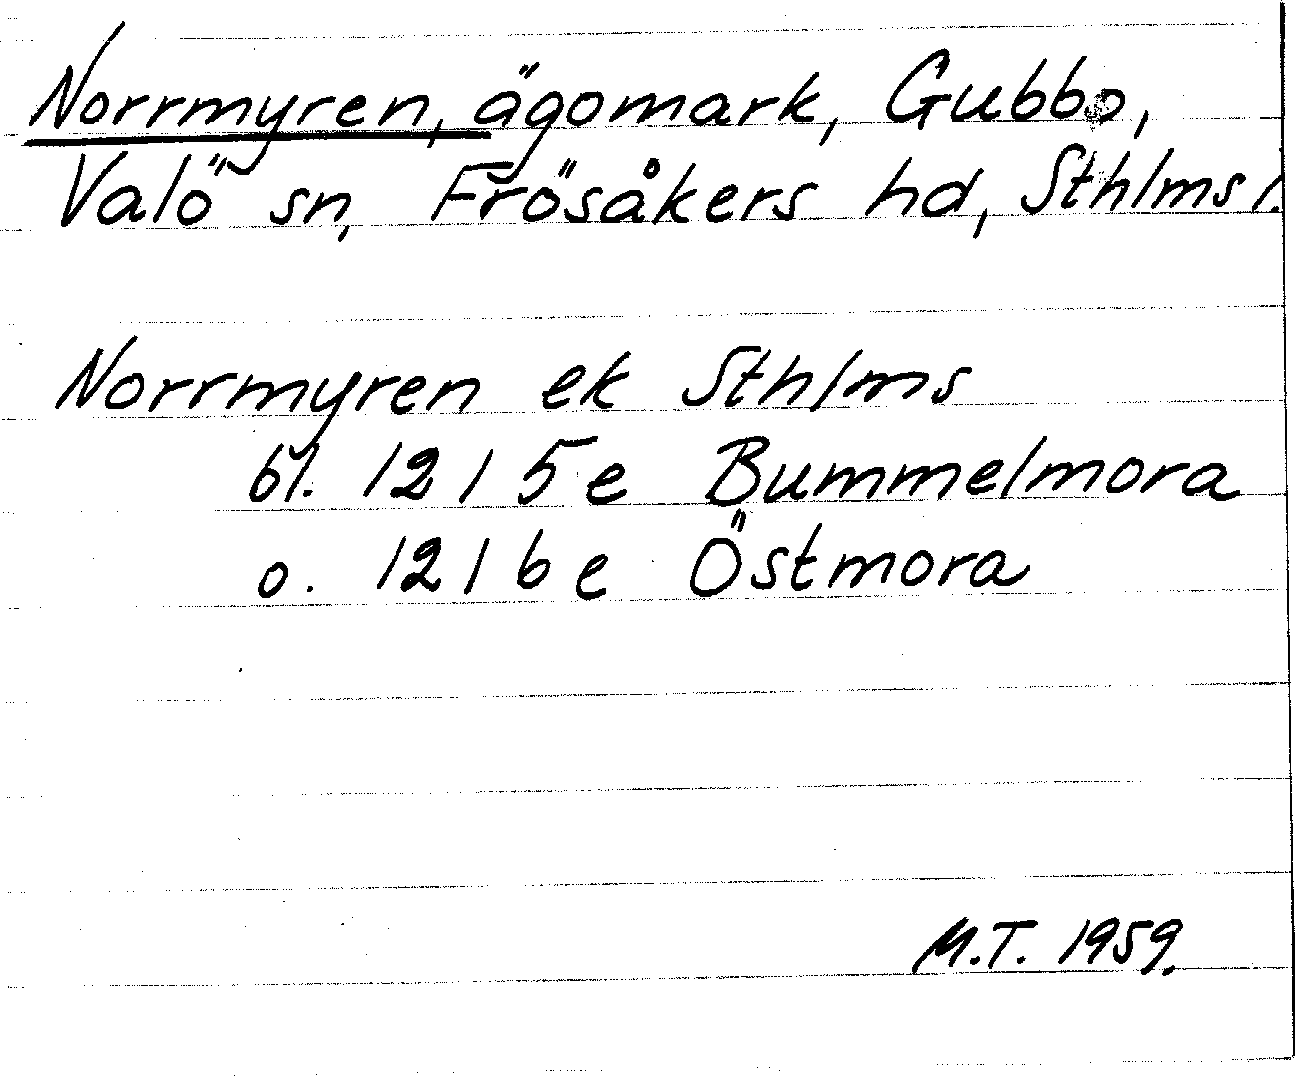 Norrmyren, ägomark, Gubbo,
Valö sn, Frösåkers hd, Sthlms l.
Norrmyren ek Sthlms
bl. 12 I 5e Bummelmora
o. 12 I 6e Östmora
M.T. 1959.